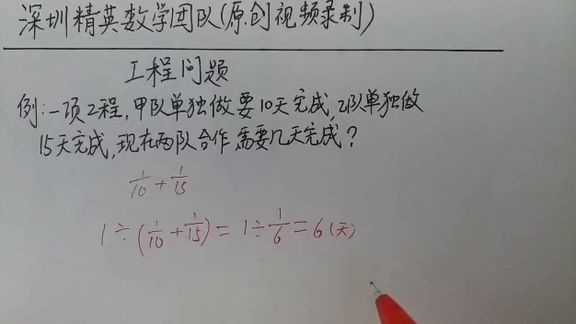 深圳精英数学团队(原创视频录制)
工程问题
例:一项工程,甲队单独做要10天完成,乙队单独做
15天完成,现在两队合作,需要几天完成?
1/10 + 1/15
1÷(1/10+1/15)=1÷1/6=6(天)